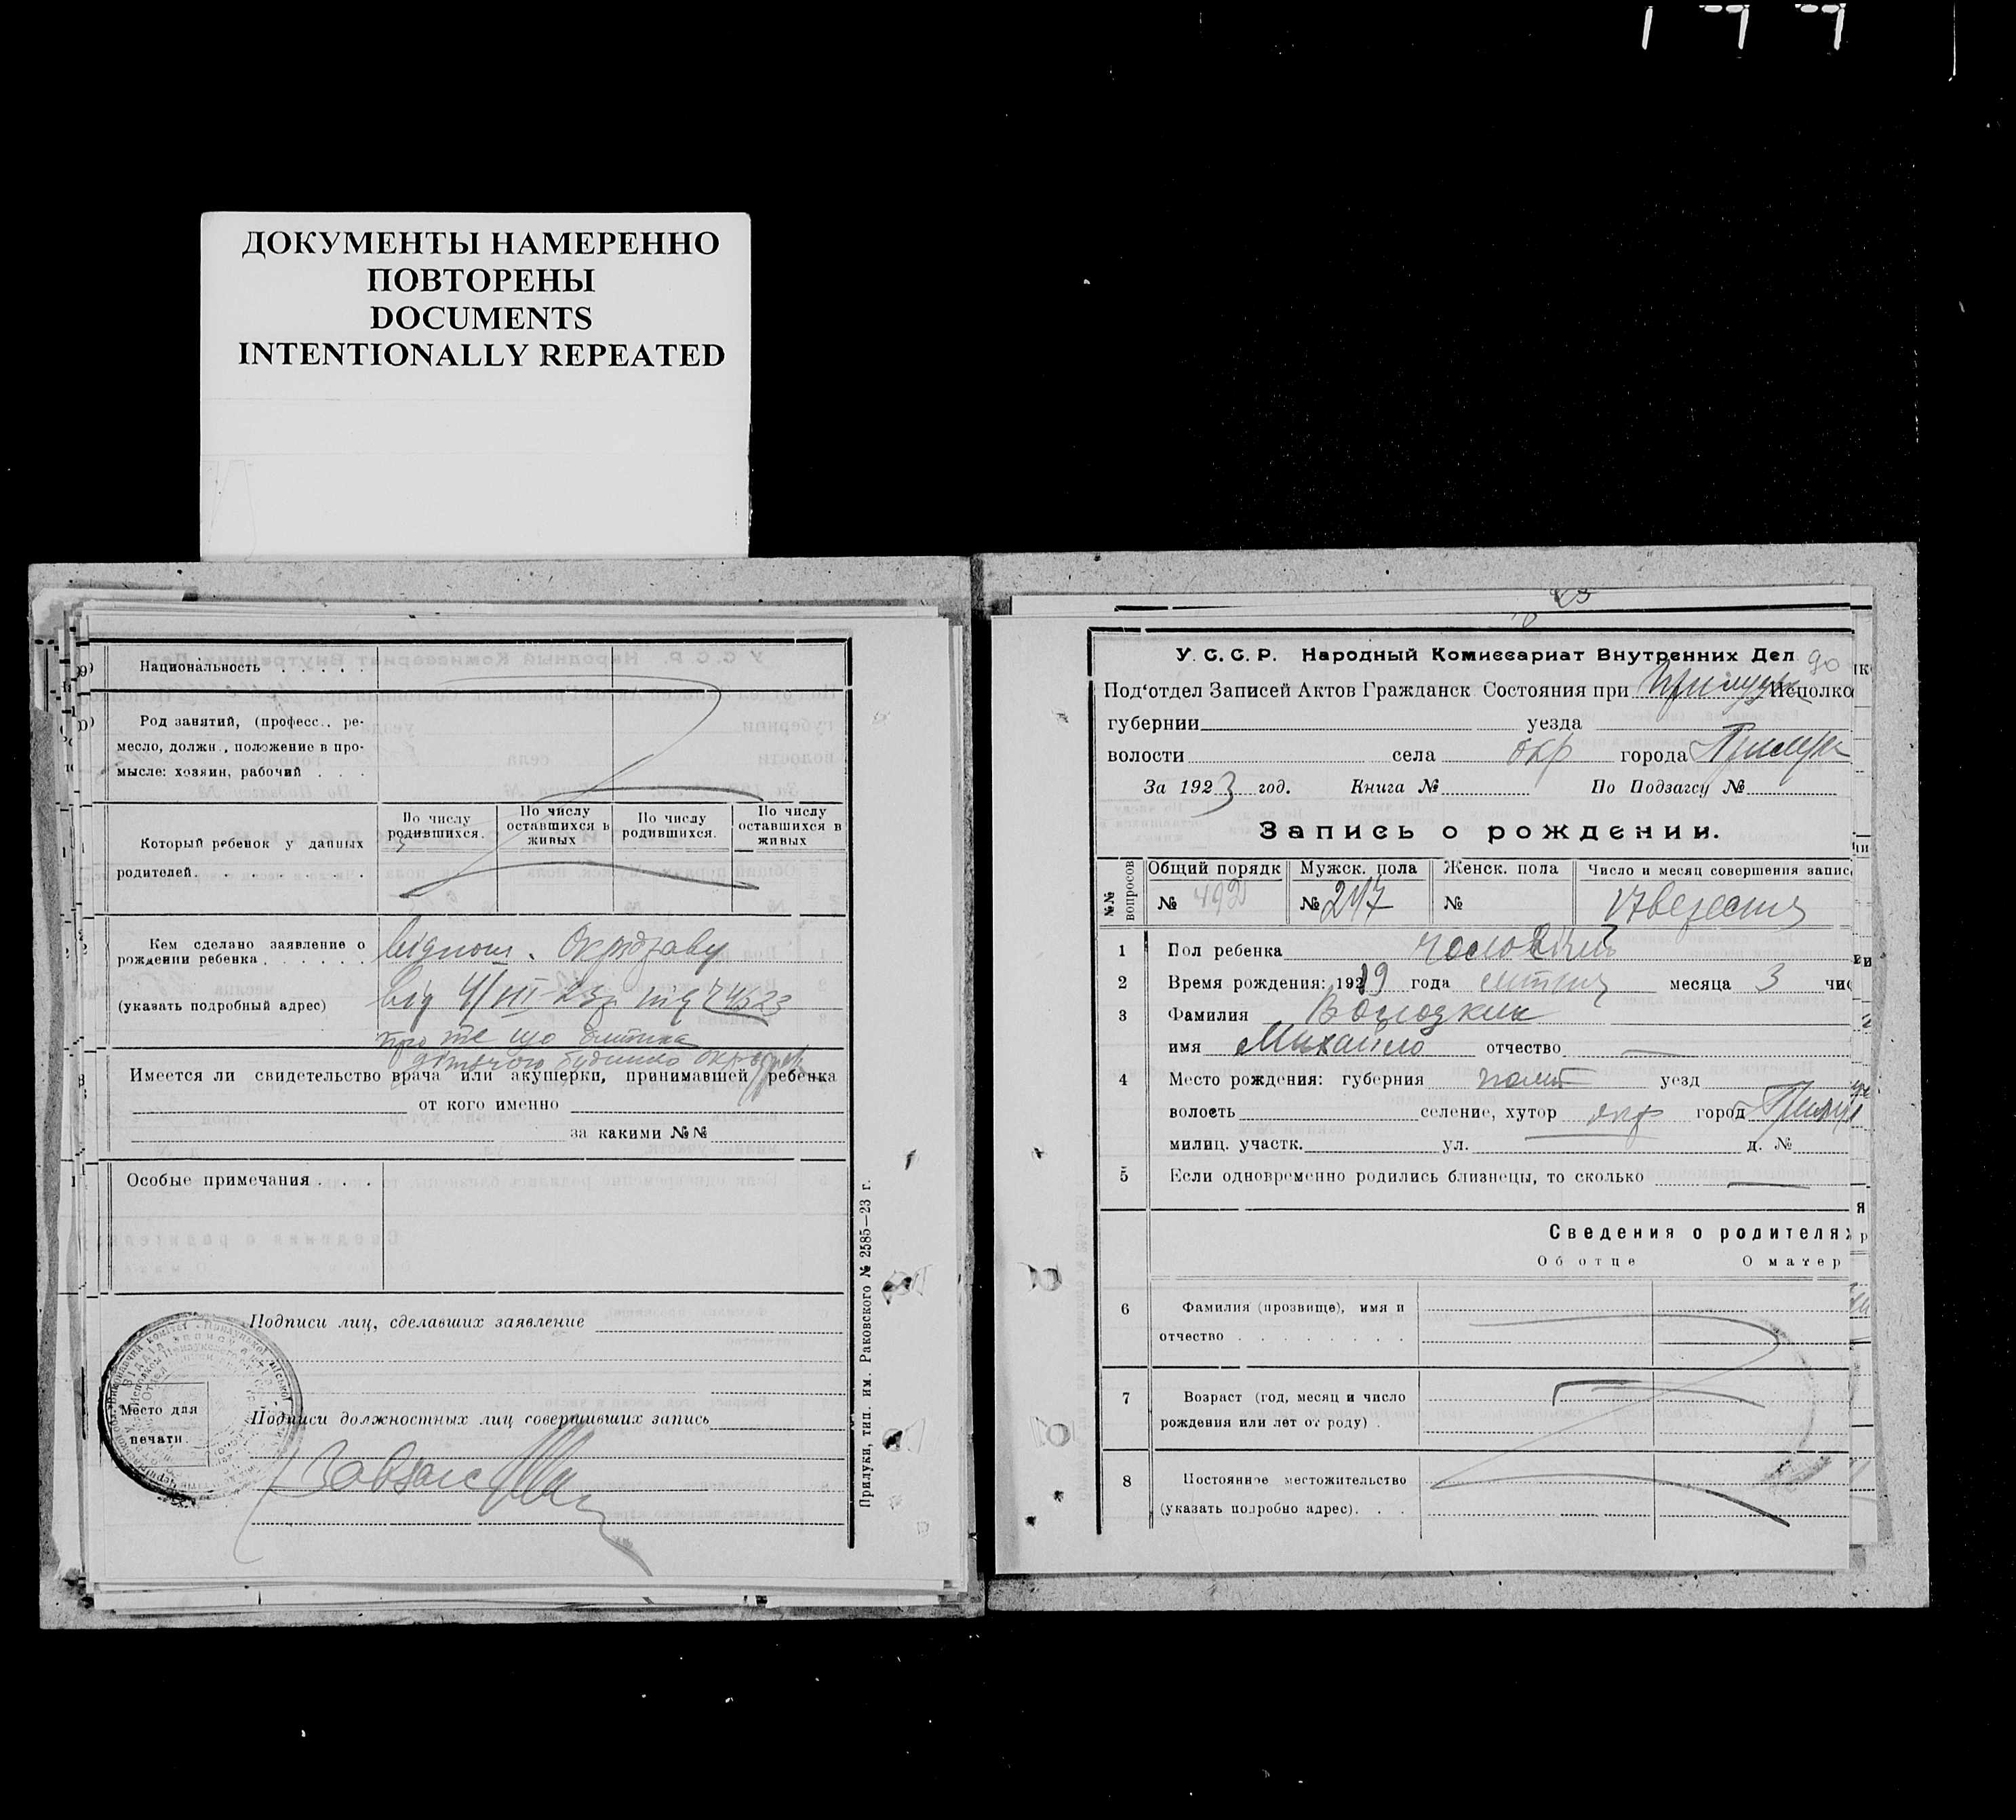 ДОКУМЕНТЫ НАМЕРЕННО
ПОВТОРЕНЫ
DOCUMENTS
INTENTIONALLY REPEATED
Национальность . . . . .
Род занятий, (професс.. ре-
месло, должн., положение в про-
мысле: хозяин, рабочий . . .
Который ребенок у данных
родителей. . . . . . . .
По числу
родившихся.
По числу
оставшихся в
живых
По числу
родившихся.
По числу
оставшихся в
живых
Кем сделано заявление о
рождении ребенка . . . . . .
(указать подробный адрес)
про те що дитина
Имеется ли свидетельство врача или акушерки, принимавшей ребенка
от кого именно
за какими №№
Особые примечания . . .
Подписи лиц, сделавших заявление
Место для
печати.
Подписи должностных лиц совершивших запись
Завзагс
Прилуки, тип. им. Раковского № 2585—23 г.
У. С. С. Р. Народный Комиссариат Внутренних Дел 90
Под'отдел Записей Актов Гражданск Состояния при Прилуцк Исполко
губернии уезда
волости села окр города Прилуки
За 1923 год. Книга № По Подзагсу №
Запись о рождении.
№№ вопросов
Общий порядк Мужск. пола Женск. пола Число и месяц совершения запис
№ 492 № 247 № 17 вересня
1 Пол ребенка чоловічий
2 Время рождения: 1919 года месяца 3 чис
3 Фамилия Володкин
имя Михайло отчество —
4 Место рождения: губерния полт уезд
волость селение, хутор окр город Прилуки
милиц. участк. ул. д. №
5 Если одновременно родились близнецы, то сколько —
Сведения о родителях
Об отце О матер
6 Фамилия (прозвище), имя и
отчество . . . . . . . .
7 Возраст (год, месяц и число
рождения или лет от роду) .
8 Постоянное местожительство
(указать подробно адрес). . .